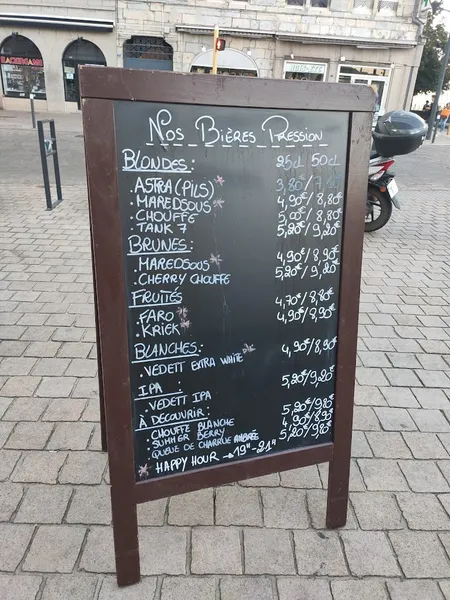 Nos Bières Pression
BLONDES: 25cl 50cl
. ASTRA (PILS) 3,80/7,
. MAREDSOUS 4,90€/8,80€
. CHOUFFE 5,00€/8,80€
. TANK 7 5,20€/9,20€
BRUNES:
. MAREDSOUS 4,90€/8,90€
. CHERRY CHOUFFE 5,20€/9,20€
FRUITÉS
. FARO 4,70€/8,80€
. KRIEK 4,90€/8,90€
BLANCHES:
. VEDETT EXTRA WHITE 4,90€/8,90€
IPA :
. VEDETT IPA 5,20€/9,20€
À DÉCOUVRIR:
. CHOUFFE BLANCHE 5,20€/9,80€
. SUMMER BERRY 4,90€/8,90€
. QUEUE DE CHARRUE AMBRÉE 5,20/9,80€
HAPPY HOUR → 19H-21H